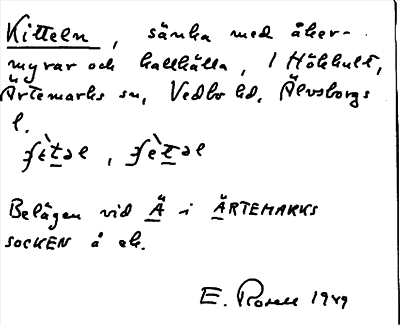 Kitteln, sänka med åker-
myrar och kallkälla, i Höhult,
Ärtemarks sn, Vedbo hd, Älvsborgs
l.
Belägen vid Ä i ÄRTEMARKS
SOCKEN å ek.
E. Rosell 1949